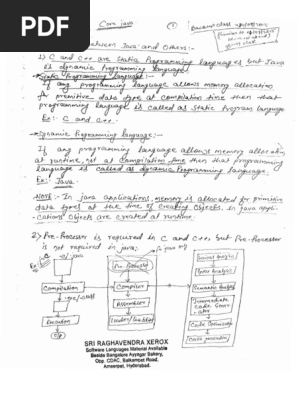 PDF
Core java
1
Between Java and Others:-
1) C and C++ are Static Programming languages but Java
is dynamic Programming language
Static Programming language:-
If any programming language allows memory allocation
for primitive data type at compilation time then that
programming language is called as Static Program language
Ex: C and C++.
Dynamic Programming language:-
If any programming language allows memory allocation
at runtime, not at compilation time then that programming
language is called as dynamic Programming language.
Ex: Java.
NOTE:- In java applications, memory is allocated for primitive
data types at the time of creating Objects, in java appli-
-cations Objects are created at runtime.
2) Pre-Processor is required in C and C++, but Pre-Processor
is not required in java;
Ex:
Pre-Processor
Compilation
Compiler
Assembler
Execution
o/p
Lexical Analysis
Syntax Analysis
Semantic Analysis
Intermediate
Code Gener
ator
Code Optimizer
Code Generator
SRI RAGHAVENDRA XEROX
Software Languages Material Available
Beside Bangalore Ayyagar Bakery,
Opp. CDAC, Balkampet Road,
Ameerpet, Hyderabad.